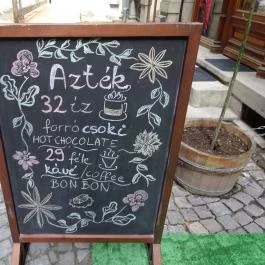 Azték
32 íz
forró csoki
HOT CHOCOLATE
29 féle
kávé / coffee
BON BON